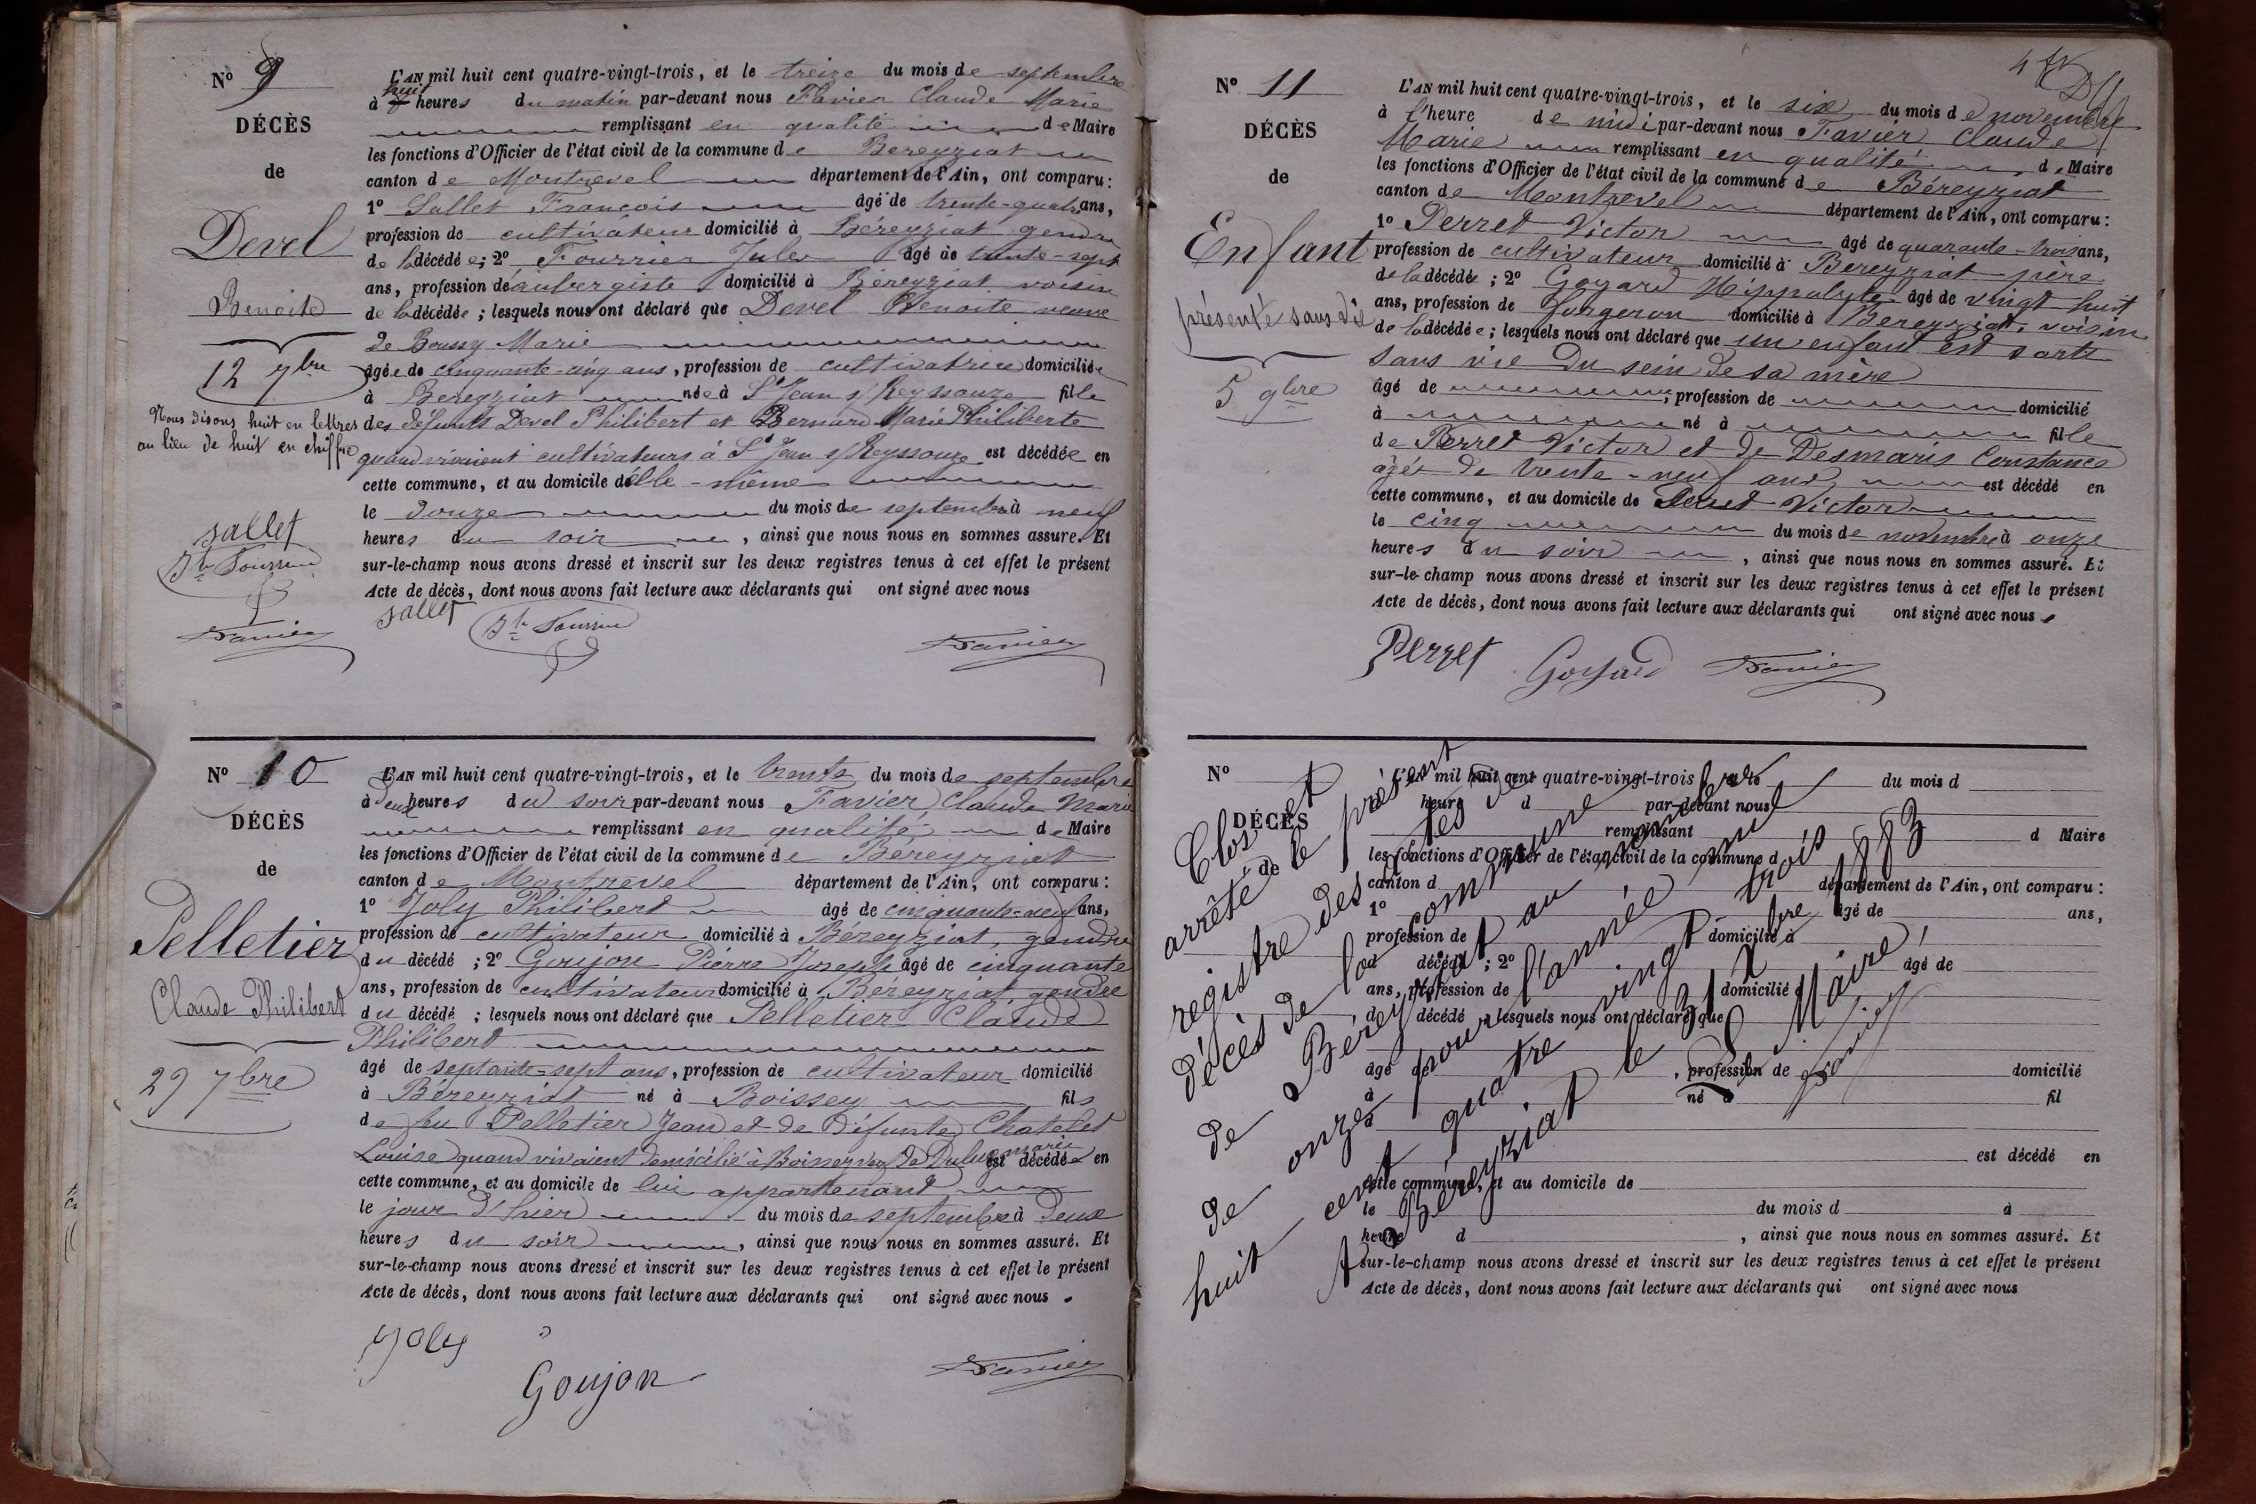 N° 9
DÉCÈS
de
Devel
Benoite
12 7bre
Nous disons huit en lettres
au lieu de huit en chiffre
Sallet
Favier
L'AN mil huit cent quatre-vingt-trois, et le treize du mois de septembre
à huit heures du matin par-devant nous Favier Claude Marie
remplissant en qualité de Maire
les fonctions d'Officier de l'état civil de la commune de Bereyziat
canton de Montrevel département de l'Ain, ont comparu :
1° Sallet François âgé de trente-quatre ans,
profession de cultivateur domicilié à Béreyziat gendre
de la décédée; 2° Fourrier Jules âgé de trente-sept
ans, profession de aubergiste domicilié à Béreyziat voisin
de la décédée ; lesquels nous ont déclaré que Devel Benoite veuve
de Boussy Marie
âgée de cinquante-cinq ans, profession de cultivatrice domiciliée
à Bereyziat née à St Jean s/ Reyssouze fille
des défunts Devel Philibert et Bernard Marie Philiberte
quand vivaient cultivateurs à St Jean s/Reyssouze est décédée en
cette commune, et au domicile d'elle-même
le douze du mois de septembre à neuf
heures du soir, ainsi que nous nous en sommes assuré. Et
sur-le-champ nous avons dressé et inscrit sur les deux registres tenus à cet effet le présent
Acte de décès, dont nous avons fait lecture aux déclarants qui ont signé avec nous
Sallet Favier
N° 10
DÉCÈS
de
Pelletier
Claude Philibert
29 7bre
L'AN mil huit cent quatre-vingt-trois, et le trente du mois de septembre
à deux heures du soir par-devant nous Favier Claude Marie
remplissant en qualité de Maire
les fonctions d'Officier de l'état civil de la commune de Béreyziat
canton de Montrevel département de l'Ain, ont comparu :
1° Joly Philibert âgé de cinquante-neuf ans,
profession de cultivateur domicilié à Béreyziat, gendre
du décédé ; 2° Goujon Pierre Joseph âgé de cinquante
ans, profession de cultivateur domicilié à Béreyziat, gendre
du décédé ; lesquels nous ont déclaré que Pelletier Claude
Philibert
âgé de septante-sept ans, profession de cultivateur domicilié
à Béreyziat né à Boissey fils
de feu Pelletier Jean et de défunte Chatelet
Louise quand vivaient domicilié à Boissey est décédé en
cette commune, et au domicile de lui appartenant
le jour d'hier du mois de septembre à deux
heures du soir, ainsi que nous nous en sommes assuré. Et
sur-le-champ nous avons dressé et inscrit sur les deux registres tenus à cet effet le présent
Acte de décès, dont nous avons fait lecture aux déclarants qui ont signé avec nous.
Joly
Goujon Favier
N° 11
DÉCÈS
de
Enfant
présenté sans vie
5 9bre
L'AN mil huit cent quatre-vingt-trois, et le six du mois de novembre
à l'heure de midi par-devant nous Favier Claude
Marie remplissant en qualité de Maire
les fonctions d'Officier de l'état civil de la commune de Béreyziat
canton de Montrevel département de l'Ain, ont comparu :
1° Perret Victor âgé de quarante-trois ans,
profession de cultivateur domicilié à Bereyziat père
de la décédée ; 2° Goyard Hippolyte âgé de vingt huit
ans, profession de forgeron domicilié à Bereyziat, voisin
de la décédée ; lesquels nous ont déclaré que un enfant est sorti
sans vie du sein de sa mère
âgé de ; profession de domicilié
à né à fille
de Perret Victor et de Desmaris Constance
âgée de trente-neuf ans est décédé en
cette commune, et au domicile de Perret Victor
le cinq du mois de novembre à onze
heures du soir, ainsi que nous nous en sommes assuré. Et
sur-le-champ nous avons dressé et inscrit sur les deux registres tenus à cet effet le présent
Acte de décès, dont nous avons fait lecture aux déclarants qui ont signé avec nous
Perret Goyard Favier
N°
DÉCÈS
de
L'AN mil huit cent quatre-vingt-trois, et le du mois d
à heure d par-devant nous
remplissant d Maire
les fonctions d'Officier de l'état civil de la commune d
canton d département de l'Ain, ont comparu :
1° âgé de ans,
profession de domicilié à
d décédé ; 2° âgé de
ans, profession de domicilié à
d décédé ; lesquels nous ont déclaré que
âgé de , profession de domicilié
à né à fil
est décédé en
cette commune, et au domicile de
le du mois d à
heure d , ainsi que nous nous en sommes assuré. Et
sur-le-champ nous avons dressé et inscrit sur les deux registres tenus à cet effet le présent
Acte de décès, dont nous avons fait lecture aux déclarants qui ont signé avec nous
Clos et
arrêté le présent
registre des actes de
décès de la commune
de Béreyziat au nombre
de onze pour l'année mil
huit cent quatre vingt trois
A Béreyziat le 31 Xbre 1883
Le Maire,
Favier